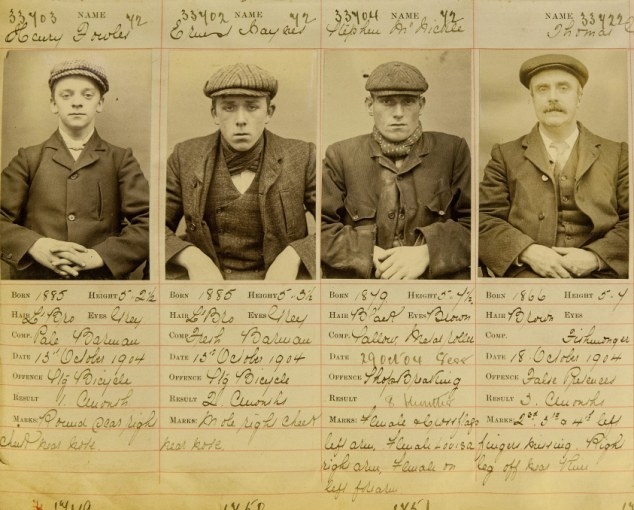 33703 NAME 72
Henry Fowler
33702 NAME 72
Ernest Haynes
33704 NAME 72
Stephen McNickle
NAME 33722
Thomas
BORN 1885 HEIGHT 5-2½
HAIR Lt Bro EYES Grey
COMP. Pale Barman
DATE 15 October 1904
OFFENCE Stg Bicycle
RESULT 1 month
MARKS: Round scar right
cheek near nose
BORN 1885 HEIGHT 5-3½
HAIR Lt Bro EYES Grey
COMP. Fresh Barman
DATE 15 October 1904
OFFENCE Stg Bicycle
RESULT 2 months
MARKS: Mole right cheek
near nose
BORN HEIGHT 5-7½
HAIR Black EYES Brown
COMP. Sallow
DATE 29 Oct 04
OFFENCE Shop Breaking
RESULT
MARKS: Female
left arm Female Louisa
right arm Female on
left forearm
BORN 1866 HEIGHT 5-4
HAIR Brown EYES
COMP. Fishmonger
DATE 18 October 1904
OFFENCE False Pretences
RESULT 3 months
MARKS: 2nd 3rd & 4th left
fingers missing. Right
leg off near